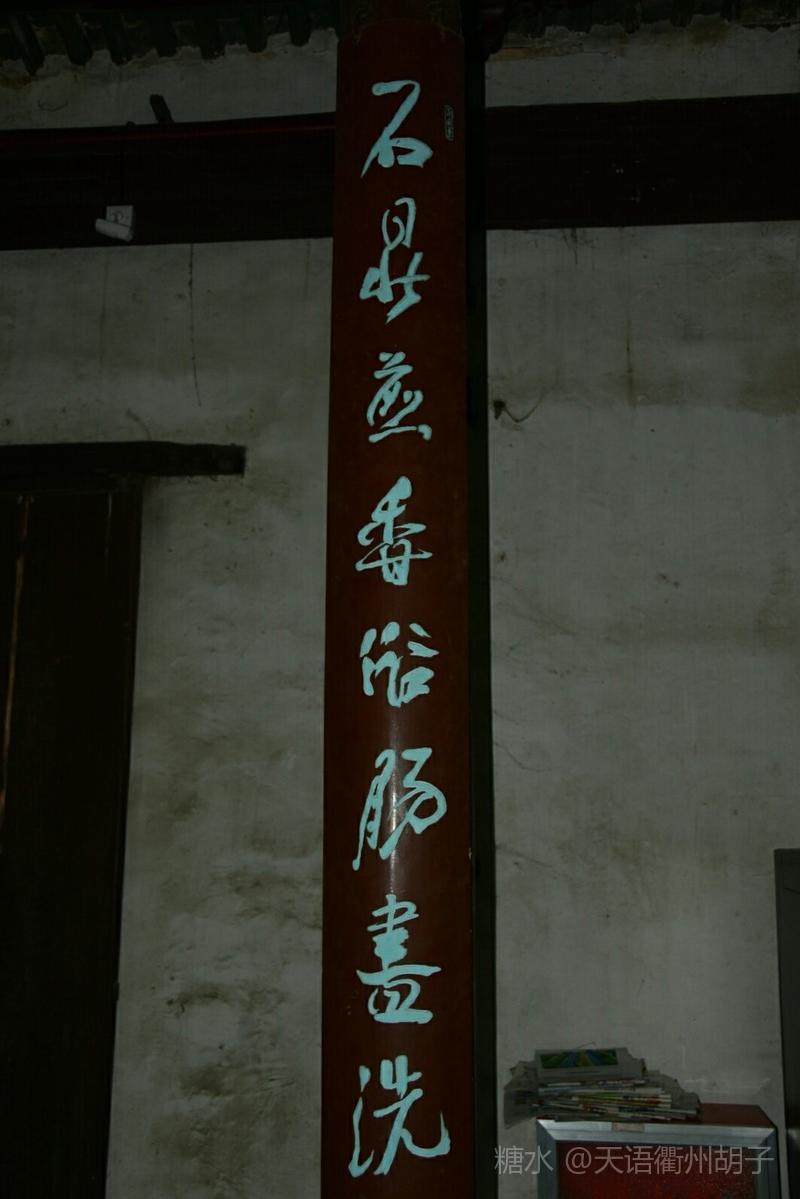 石鼎煎香俗肠盡洗
糖水 @天语衢州胡子